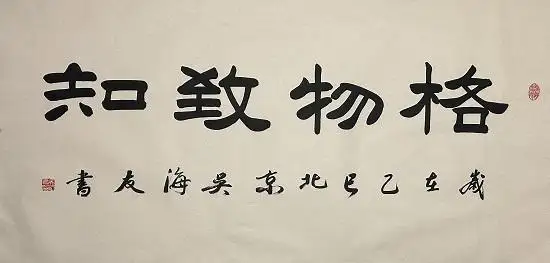 格物致知
歲在乙巳北京吴海友書